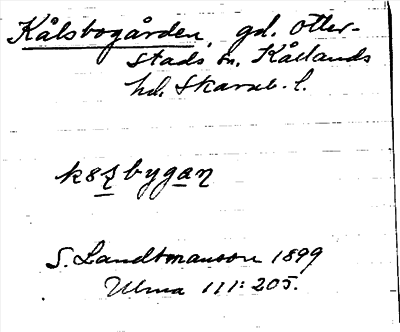 Kålsbogården, gd. Otter-
stads sn. Kållands
hd. Skarab. l.
k8ʂbygan
S. Landtmanson 1899
Ulma 111: 205.